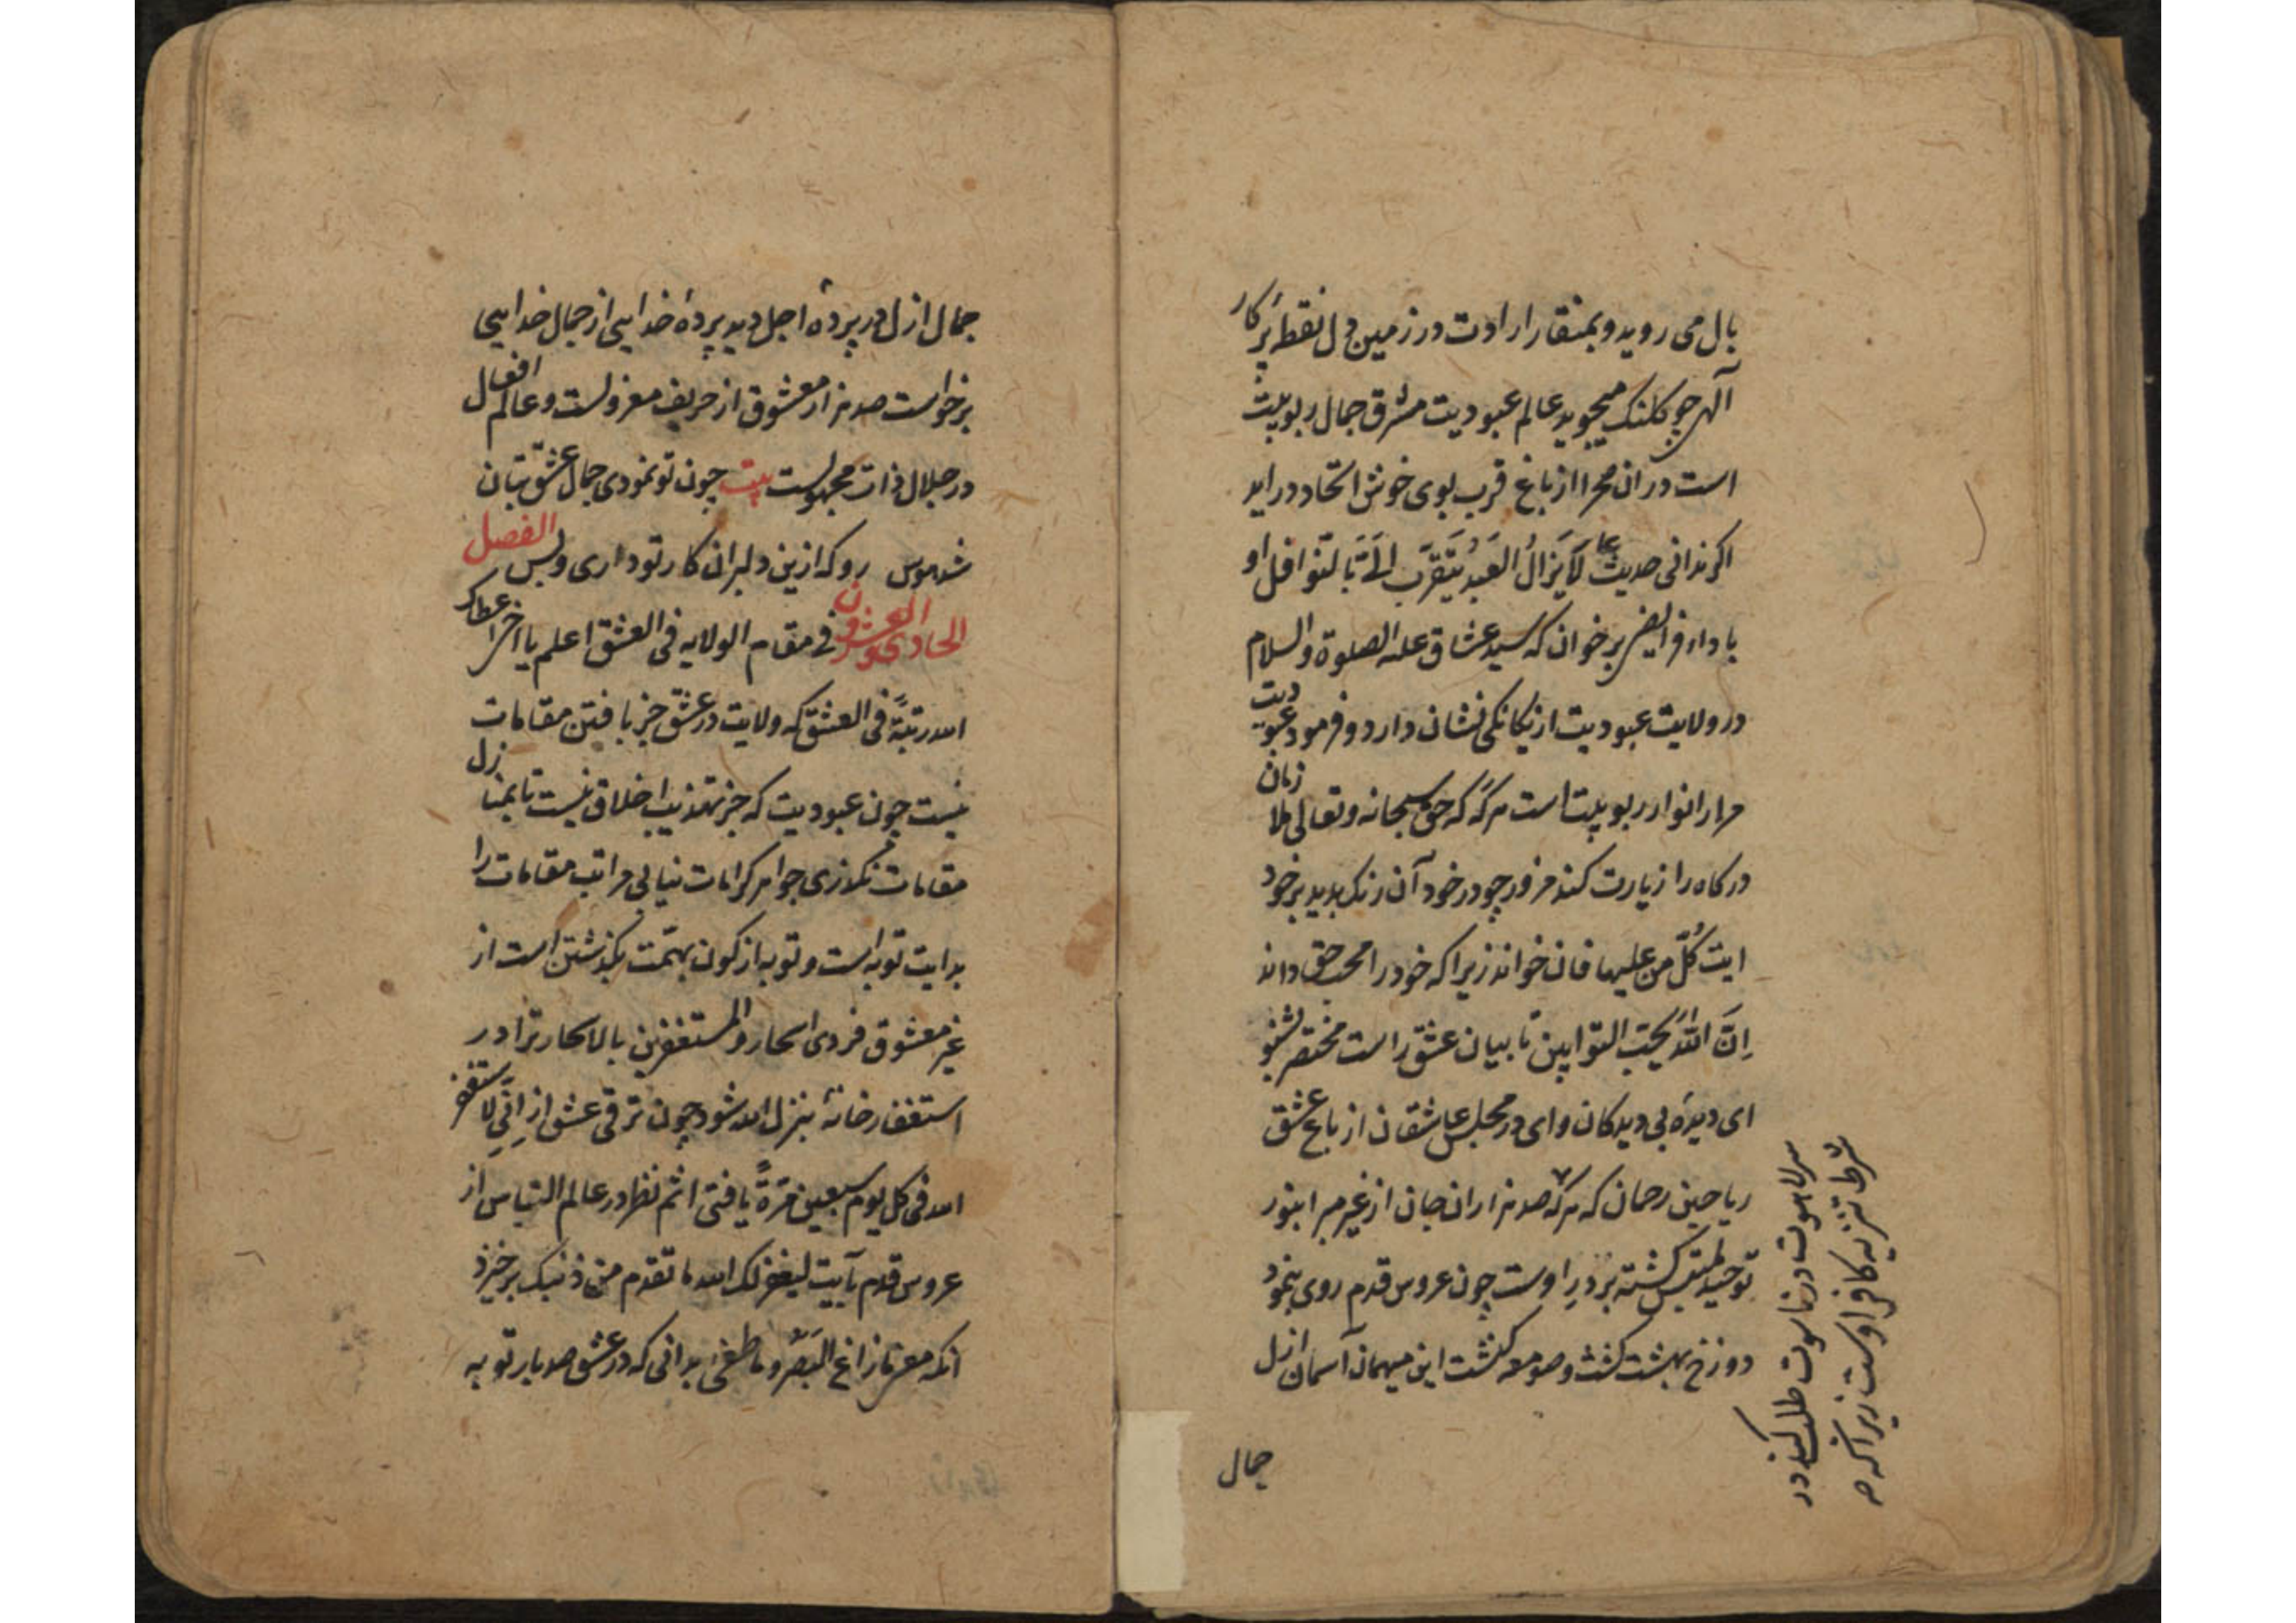 بال می روید و بمنقار ارادت در زمین دل نقطه پرکار
آلهی جو کلنک میجوید عالم عبودیت مشرق جمال ربوبیت
است در ان صحرا از باغ قرب بوی خوش اتحاد در اید
اکر ندانی حدیث لَایَزالُ العَبدُ یَتَقَرَّب اِلَیَّ بالنّوافل او
با داء فرایض بر خوان که سید عشاق علیه الصلوة والسلام
در ولایت عبودیت از یکانکی نشان دارد و فرمود عبودیت
مرا را نوار ربوبیت است هرکه که حق سبحانه و تعالی زمان
درکاه را زیارت کند مزور چو در خود آن رنک بدید بر خود
ایت کُلُّ من علیها فان خواند زیرا که خود را محب حق داند
اِنَّ اللّٰهَ یُحِبّ التوابین تا بیان عشق راست مختصر بشنو
ای دیدهٔ بی دیدکان و ای در مجلس عاشقان از باغ عشق
ریاحین رحمان که هرکه صد هزاران جان از غیر مبرا بنور
توحید ملتبس کشته بر در اوست چون عروس قدم روی بنمود
دوزخ بهشت کشت و صومعه کنشت این میهمان آسمان ازل
جمال
سر لاهوت در ناسوت طلب کند در
شرط تنزیه کافر اوست زیرا که
جمال ازل در پردهٔ اجل دید پردهٔ خدایی از جمال خدایی
برخواست صد هزار معشوق از حریف معزولست و عالم افعال
در جلال ذات مجهولست بیت چون تو نمودی جمال عشق بتان
شد هوس رو که ازین دلبران کار تو داری و بس الفصل
الحادی والعشرون فی مقام الولایه فی العشق اعلم یا اخی اعطاک
الله رتبةً فی العشق که ولایت در عشق جز یافتن مقامات
نیست چون عبودیت که جز تهذیب اخلاق نیست تا بمنازل
مقامات نکذری جواهر کرامات نیابی مراتب مقامات را
بدایت توبه است و توبه از کون بهمّت بکذشتن است از
غیر معشوق فردی اسحار والمستغفرین بالاسحار ترا در
استغفار خانهٔ بنزل الله شود چون ترقی عشق از اِنّی لاستغفر
الله فی کل یوم سبعین مَرَّةً یافتی اثم نظر در عالم التباس از
عروس قدم بآیت لیغفر لک الله ما تقدم من ذنبک برخیزد
انکه معنی مازاغ البَصَرُ وماطغی بدانی که در عشق صد بار توبه